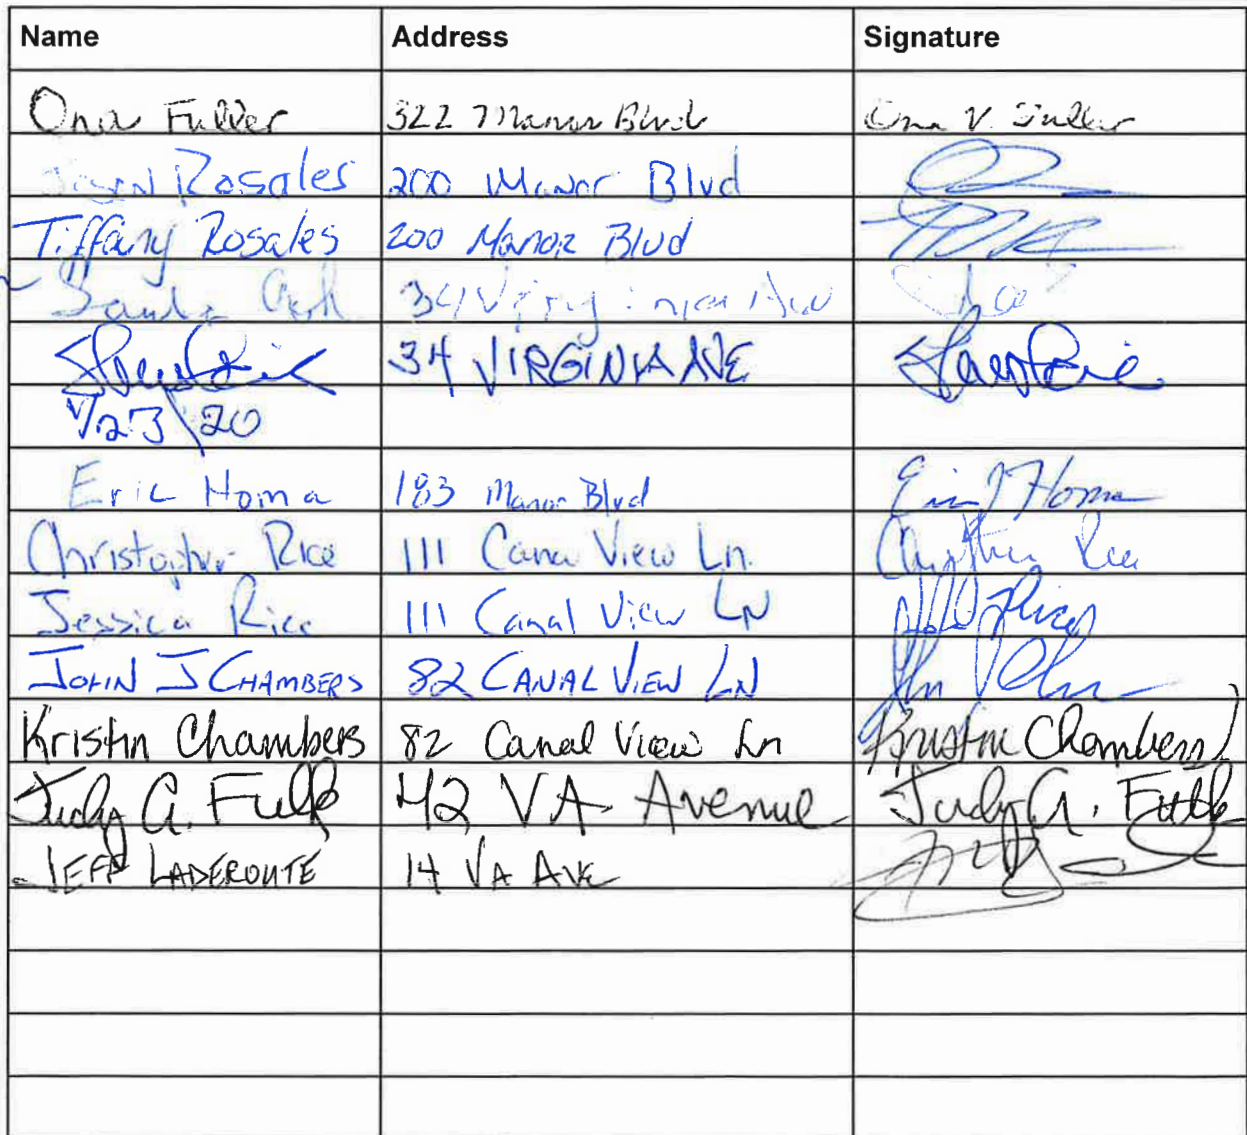 Name Address Signature
Ona Fuller 322 Manor Blvd Ona V. Fuller
Rosales 200 Manor Blvd
Tiffany Rosales 200 Manor Blvd
34 Ave
34 VIRGINIA AVE
1/23/20
Eric Homa 183 Manor Blvd Eric J Homa
Christopher Rice 111 Canal View Ln. Christopher Rice
Jessica Rice 111 Canal View LN
JOHN J CHAMBERS 82 CANAL VIEW LN
Kristin Chambers 82 Canal View Ln Kristin Chambers
Judy A. Fulk 42 VA Avenue Judy A. Fulk
JEFF LADEROUTE 14 VA AVE